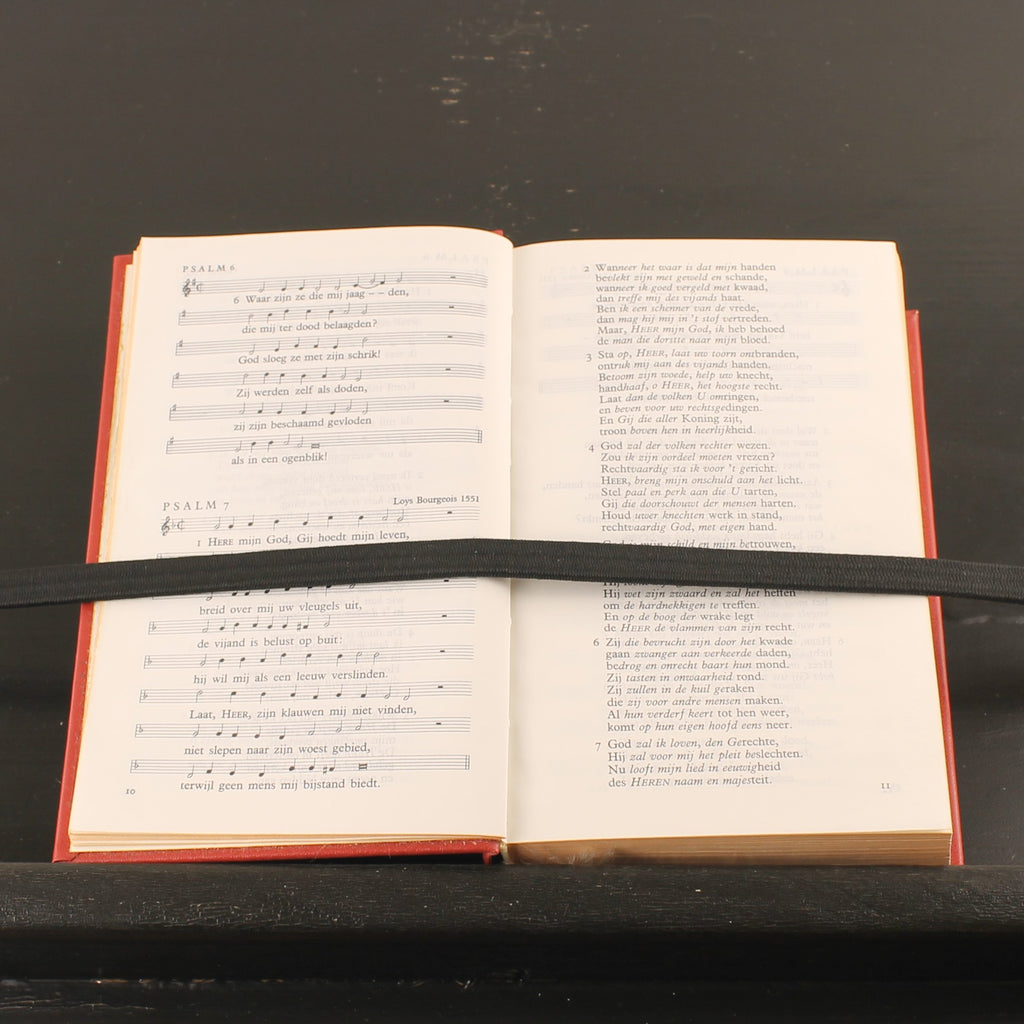 PSALM 6
6 Waar zijn ze die mij jaag – – den,
die mij ter dood belaagden?
God sloeg ze met zijn schrik!
Zij werden zelf als doden,
zij zijn beschaamd gevloden
als in een ogenblik!
PSALM 7
Loys Bourgeois 1551
1 HERE mijn God, Gij hoedt mijn leven,
breid over mij uw vleugels uit,
de vijand is belust op buit:
hij wil mij als een leeuw verslinden.
Laat, HEER, zijn klauwen mij niet vinden,
niet slepen naar zijn woest gebied,
terwijl geen mens mij bijstand biedt.
10
2 Wanneer het waar is dat mijn handen
bevlekt zijn met geweld en schande,
wanneer ik goed vergeld met kwaad,
dan treffe mij des vijands haat.
Ben ik een schenner van de vrede,
dan mag hij mij in 't stof vertreden.
Maar, HEER mijn God, ik heb behoed
de man die dorstte naar mijn bloed.
3 Sta op, HEER, laat uw toorn ontbranden,
ontruk mij aan des vijands handen.
Betoom zijn woede, help uw knecht,
handhaaf, o HEER, het hoogste recht.
Laat dan de volken U omringen,
en beven voor uw rechtsgedingen.
En Gij die aller Koning zijt,
troon boven hen in heerlijkheid.
4 God zal der volken rechter wezen.
Zou ik zijn oordeel moeten vrezen?
Rechtvaardig sta ik voor 't gericht.
HEER, breng mijn onschuld aan het licht.
Stel paal en perk aan die U tarten,
Gij die doorschouwt der mensen harten.
Houd uwer knechten werk in stand,
rechtvaardig God, met eigen hand.
God is mijn schild en mijn betrouwen,
Hij wet zijn zwaard en zal het heffen
om de hardnekkigen te treffen.
En op de boog der wrake legt
de HEER de vlammen van zijn recht.
6 Zij die bevrucht zijn door het kwade
gaan zwanger aan verkeerde daden,
bedrog en onrecht baart hun mond.
Zij tasten in onwaarheid rond.
Zij zullen in de kuil geraken
die zij voor andre mensen maken.
Al hun verderf keert tot hen weer,
komt op hun eigen hoofd eens neer.
7 God zal ik loven, den Gerechte,
Hij zal voor mij het pleit beslechten.
Nu looft mijn lied in eeuwigheid
des HEREN naam en majesteit.
11